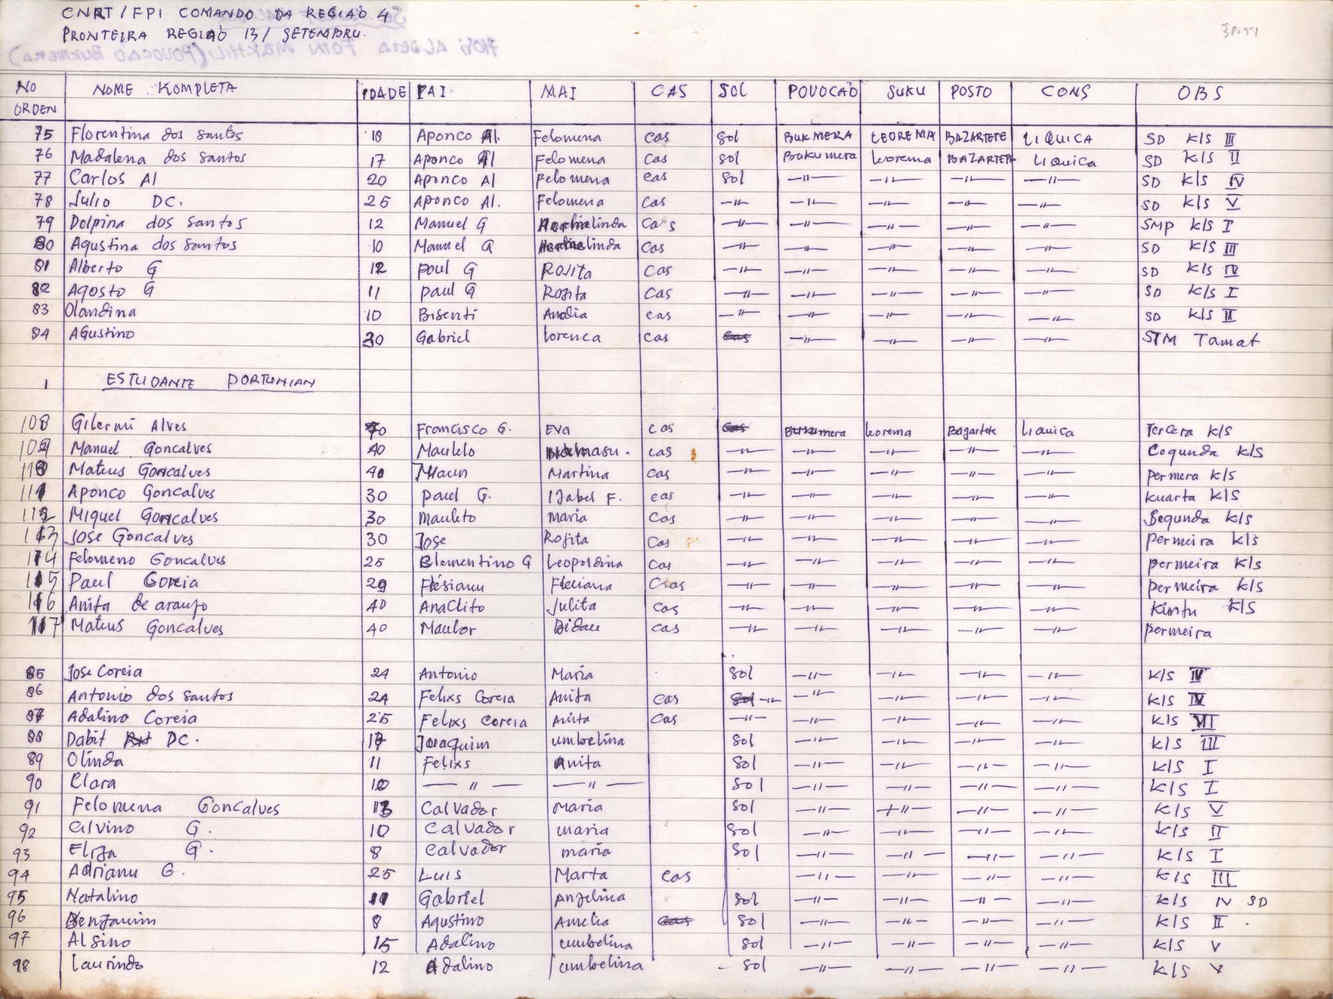 CNRT/FPI COMANDO DA REGIAO 4
PRONTEIRA REGIAO 13/ SETEMBRU.
No ORDEN NOME KOMPLETA IDADE PAI MAI CAS SOL POVOCAO SUKU POSTO CONS OBS
75 Florentina dos santos 18 Aponco Al. Felomena cas sol BUKMERA LEOREMA BAZARTETE LIQUICA SD KlS III
76 Madalena dos santos 17 Aponco Al Felomena Cas sol Boukumera Lorema BAZARTETE LIQUICA SD KlS II
77 Carlos Al 20 Aponco Al Felomena cas sol —〃— —〃— —〃— —〃— SD KlS IV
78 Julio DC. 25 Aponco Al. Felomena Cas —〃— —〃— —〃— —〃— —〃— SD KlS V
79 Dolpina dos santos 12 Manuel G linda Cas —〃— —〃— —〃— —〃— —〃— SMP KlS I
80 Agustina dos santos 10 Manuel G linda Cas —〃— —〃— —〃— —〃— —〃— SD KlS III
81 Alberto G 12 Poul G ROJITA Cas —〃— —〃— —〃— —〃— —〃— SD KlS IV
82 Agosto G 11 Paul G Rojita Cas —〃— —〃— —〃— —〃— —〃— SD KlS I
83 Olandina 10 Bisenti Analia cas —〃— —〃— —〃— —〃— —〃— SD KlS II
84 AGustino 30 Gabriel Lorenca Cas —〃— —〃— —〃— —〃— STM Tamat
1 ESTUDANTE PORTUNIAN
108 Gilermi Alves 70 Francisco G. Eva cas Bukumera Lorema Bazartete Liquica Tercera KlS
109 Manuel Goncalves 40 Maulelo cas —〃— —〃— —〃— —〃— —〃— Cegunda KlS
110 Mateus Goncalves 40 Martina Cas —〃— —〃— —〃— —〃— —〃— Permera KlS
111 Aponco Goncalves 30 Paul G. IJabel F. cas —〃— —〃— —〃— —〃— —〃— Kuarta KlS
112 Miquel Goncalves 30 Mauleto Maria Cas —〃— —〃— —〃— —〃— —〃— Segunda KlS
113 Jose Goncalves 30 Jose Rojita Cas —〃— —〃— —〃— —〃— —〃— Permeira KlS
114 Felomeno Goncalves 25 Blementino G Leopoldina Cas —〃— —〃— —〃— —〃— —〃— Permeira KlS
115 Paul Goreia 29 Feliciana Cas —〃— —〃— —〃— —〃— —〃— Permeira KlS
116 Anita de araujo 40 Anaclito Julita Cas —〃— —〃— —〃— —〃— —〃— Kintu KlS
117 Mateus Goncalves 40 Maulor Cas —〃— —〃— —〃— —〃— —〃— Permeira
85 Jose Coreia 24 Antonio Maria Sol —〃— —〃— —〃— —〃— KlS IV
86 Antonio dos santos 24 Felixs Coreia Anita Cas —〃— —〃— —〃— —〃— —〃— KlS IV
87 Adalino Coreia 25 Felixs Coreia Anita Cas —〃— —〃— —〃— —〃— —〃— KlS VI
88 Dabit DC. 17 Joaquim umbelina Sol —〃— —〃— —〃— —〃— KlS III
89 Olinda 11 Felixs Anita Sol —〃— —〃— —〃— —〃— KlS I
90 Clara 10 —〃— —〃— Sol —〃— —〃— —〃— —〃— KlS I
91 Felomena Goncalves 13 Calvador Maria Sol —〃— —〃— —〃— —〃— KlS V
92 Alvino G. 10 Calvador Maria Sol —〃— —〃— —〃— —〃— KlS II
93 Eliza G. 8 Calvador maria Sol —〃— —〃— —〃— —〃— KlS I
94 Adrianu G. 25 Luis Marta Cas —〃— —〃— —〃— —〃— KlS III
95 Natalino 11 Gabriel Anjelina Sol —〃— —〃— —〃— —〃— KlS IV SD
96 Benjamim 8 Agustino Amelia Sol —〃— —〃— —〃— —〃— KlS II
97 Alsino 15 Adalino umbelina Sol —〃— —〃— —〃— —〃— KlS V
98 Laurindo 12 Adalino umbelina Sol —〃— —〃— —〃— —〃— KlS V